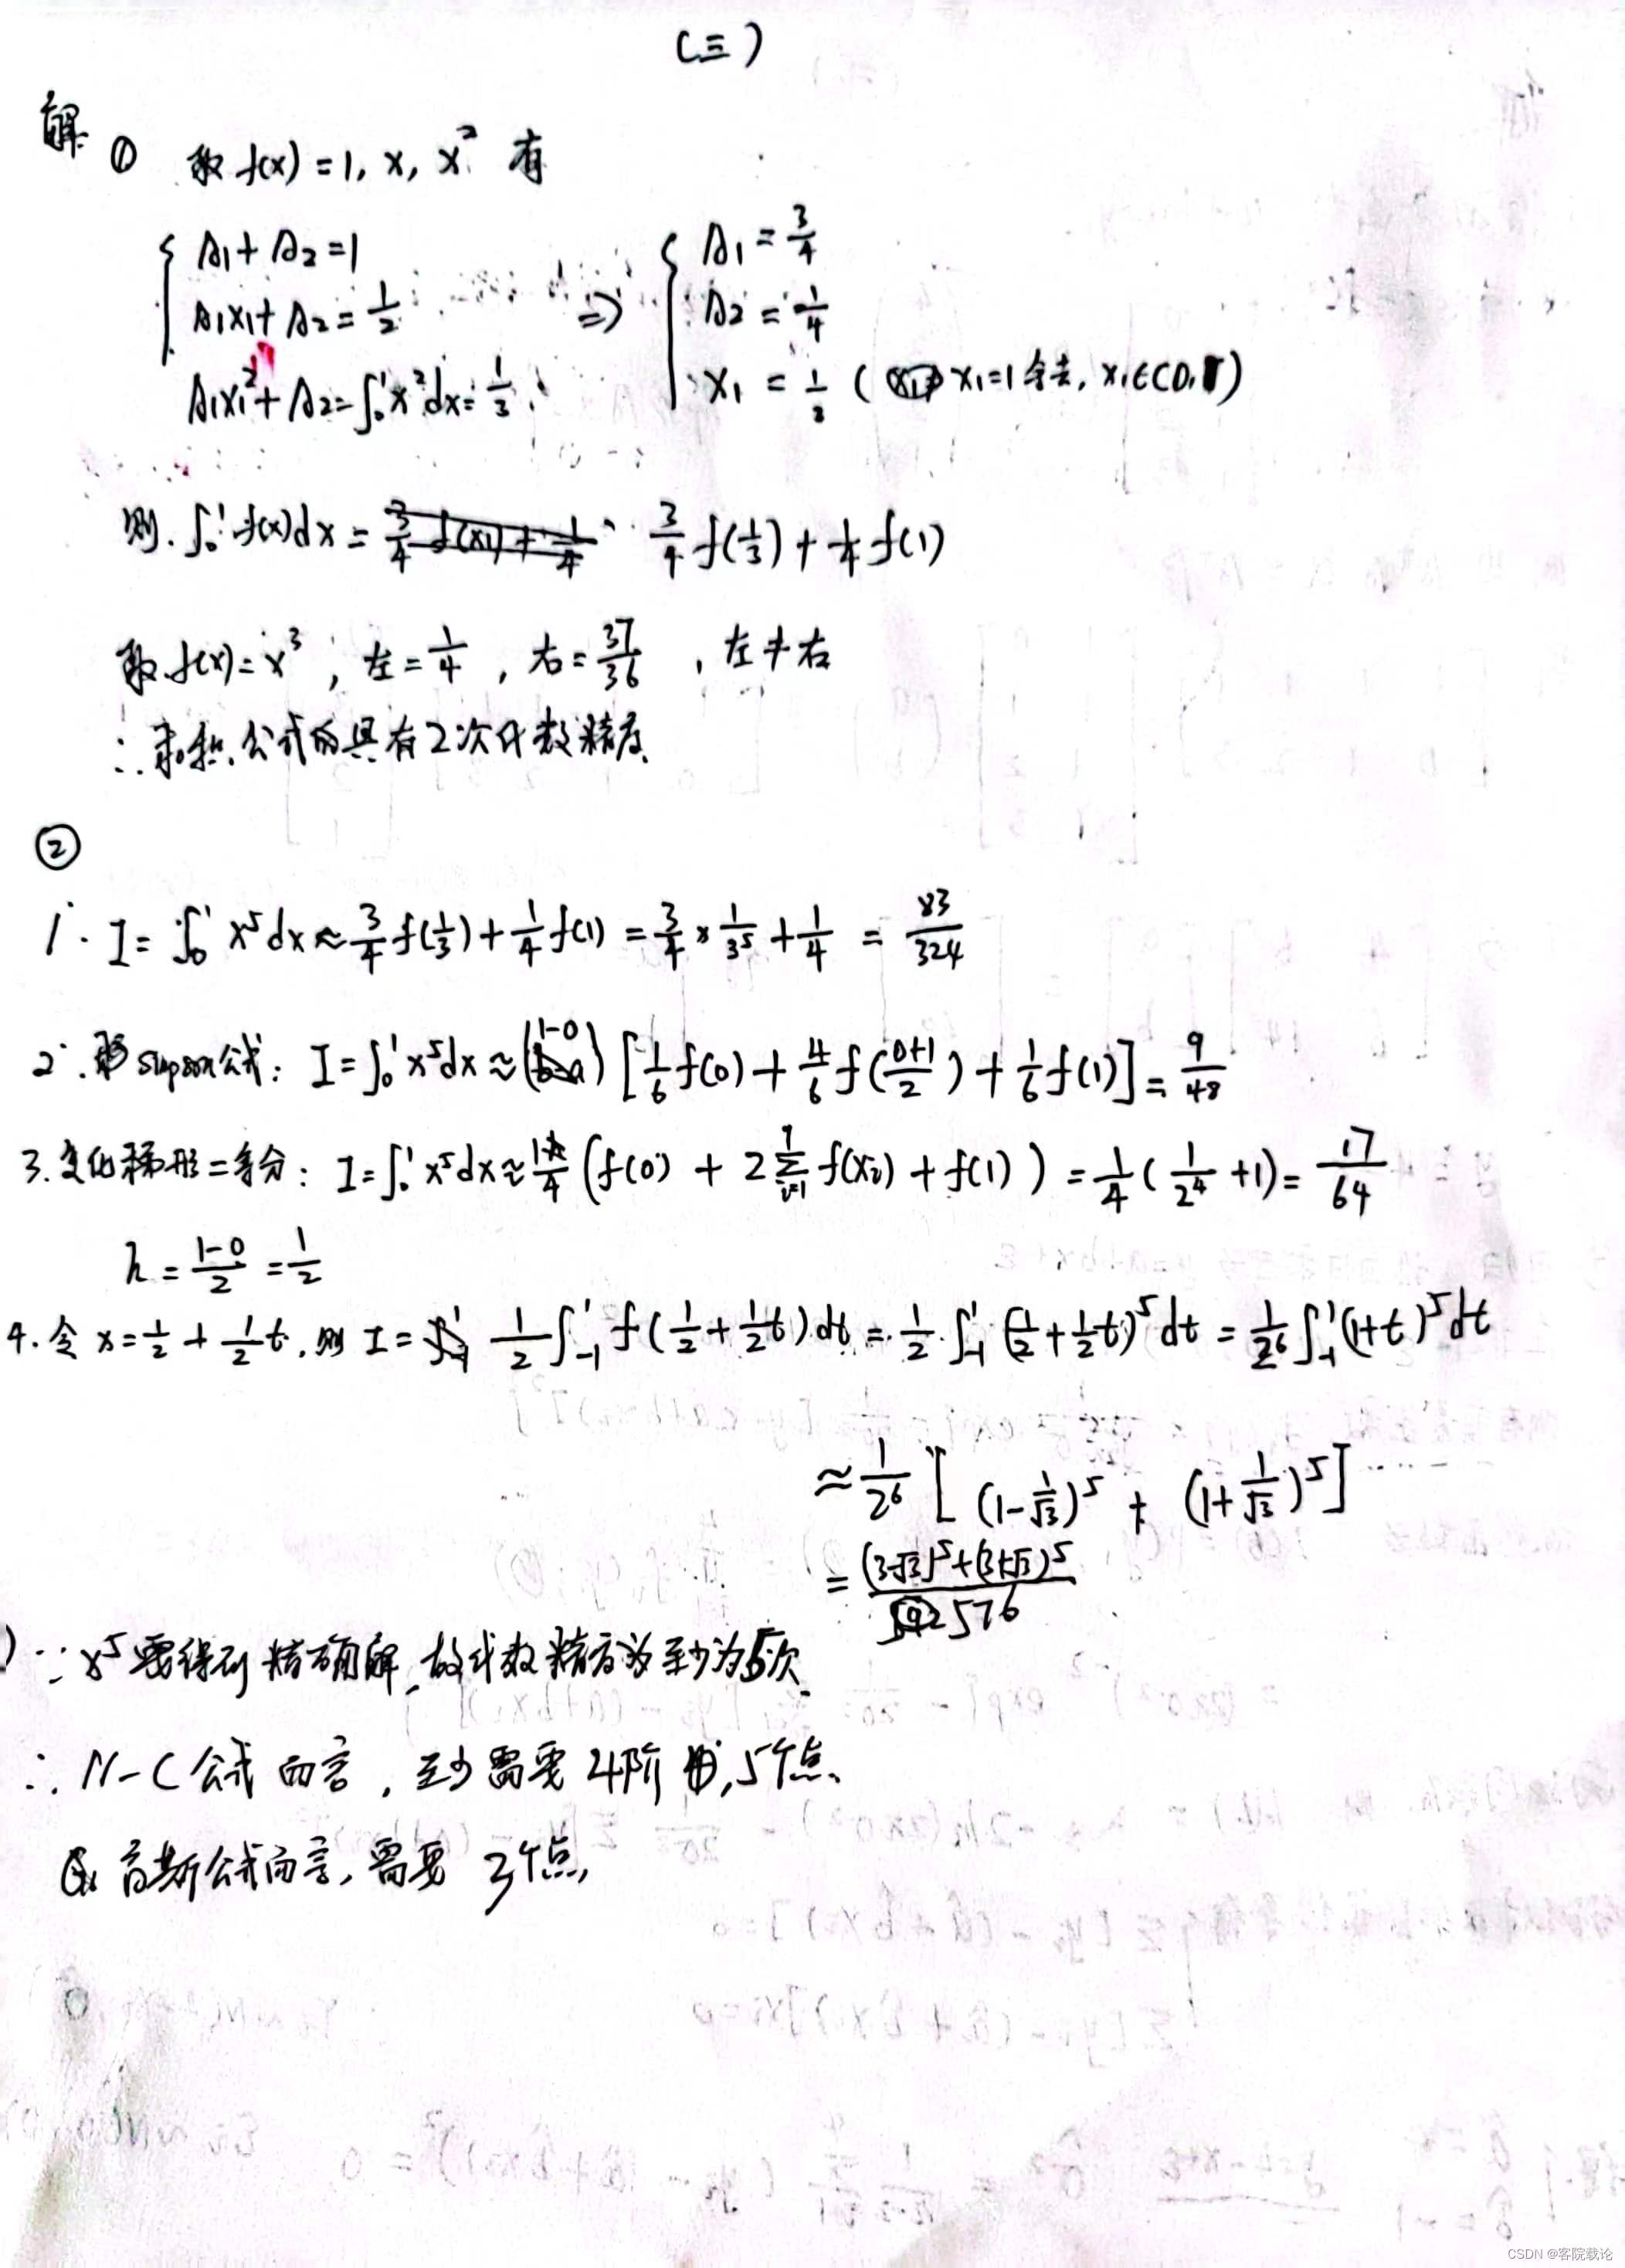 (三)
解 ① 取 f(x) = 1, x, x² 有
{ A₁ + A₂ = 1
A₁x₁ + A₂ = 1/2
A₁x₁² + A₂ = ∫₀¹ x² dx = 1/3
⇒ { A₁ = 3/4
A₂ = 1/4
x₁ = 1/3 ( x₁=1 舍去, x₁∈(0,1)
则. ∫₀¹ f(x)dx = 3/4 f(1/3) + 1/4 f(1)
取 f(x) = x³ , 左 = 1/4 , 右 = 37/36 , 左≠右
∴ 求积公式的具有2次代数精度
②
1. I = ∫₀¹ x⁵ dx ≈ 3/4 f(1/3) + 1/4 f(1) = 3/4 × 1/3⁵ + 1/4 = 83/324
2. 公式: I = ∫₀¹ x⁵dx ≈ (1-0) [1/6 f(0) + 4/6 f((0+1)/2) + 1/6 f(1)] = 9/48
3. 复化梯形二等分: I = ∫₀¹ x⁵dx ≈ 1/4 (f(0) + 2 Σᵢ₌₁¹ f(xᵢ) + f(1)) = 1/4 (1/2⁴ + 1) = 17/64
h = (1-0)/2 = 1/2
4. 令 x = 1/2 + 1/2 t, 则 I = 1/2 ∫₋₁¹ f(1/2 + 1/2 t) dt = 1/2 ∫₋₁¹ (1/2 + 1/2 t)⁵ dt = 1/2⁶ ∫₋₁¹ (1+t)⁵ dt
≈ 1/2⁶ [ (1 - 1/√3)⁵ + (1 + 1/√3)⁵ ]
= ((3-√3)⁵ + (3+√3)⁵) / 576
) ∵ x⁵ 要得到 精确解, 故代数精度为至少为5次.
∴ N-C公式 而言, 至少需要 4阶 ,5个点.
高斯公式而言, 需要 3个点,
CSDN @客院载论